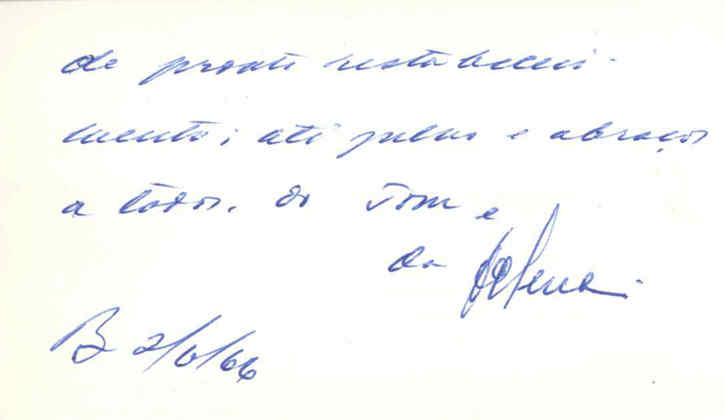 de pronto restabeleci-
mento; até e abraços
a todos. do Tom e
da Helena.
B 2/6/66